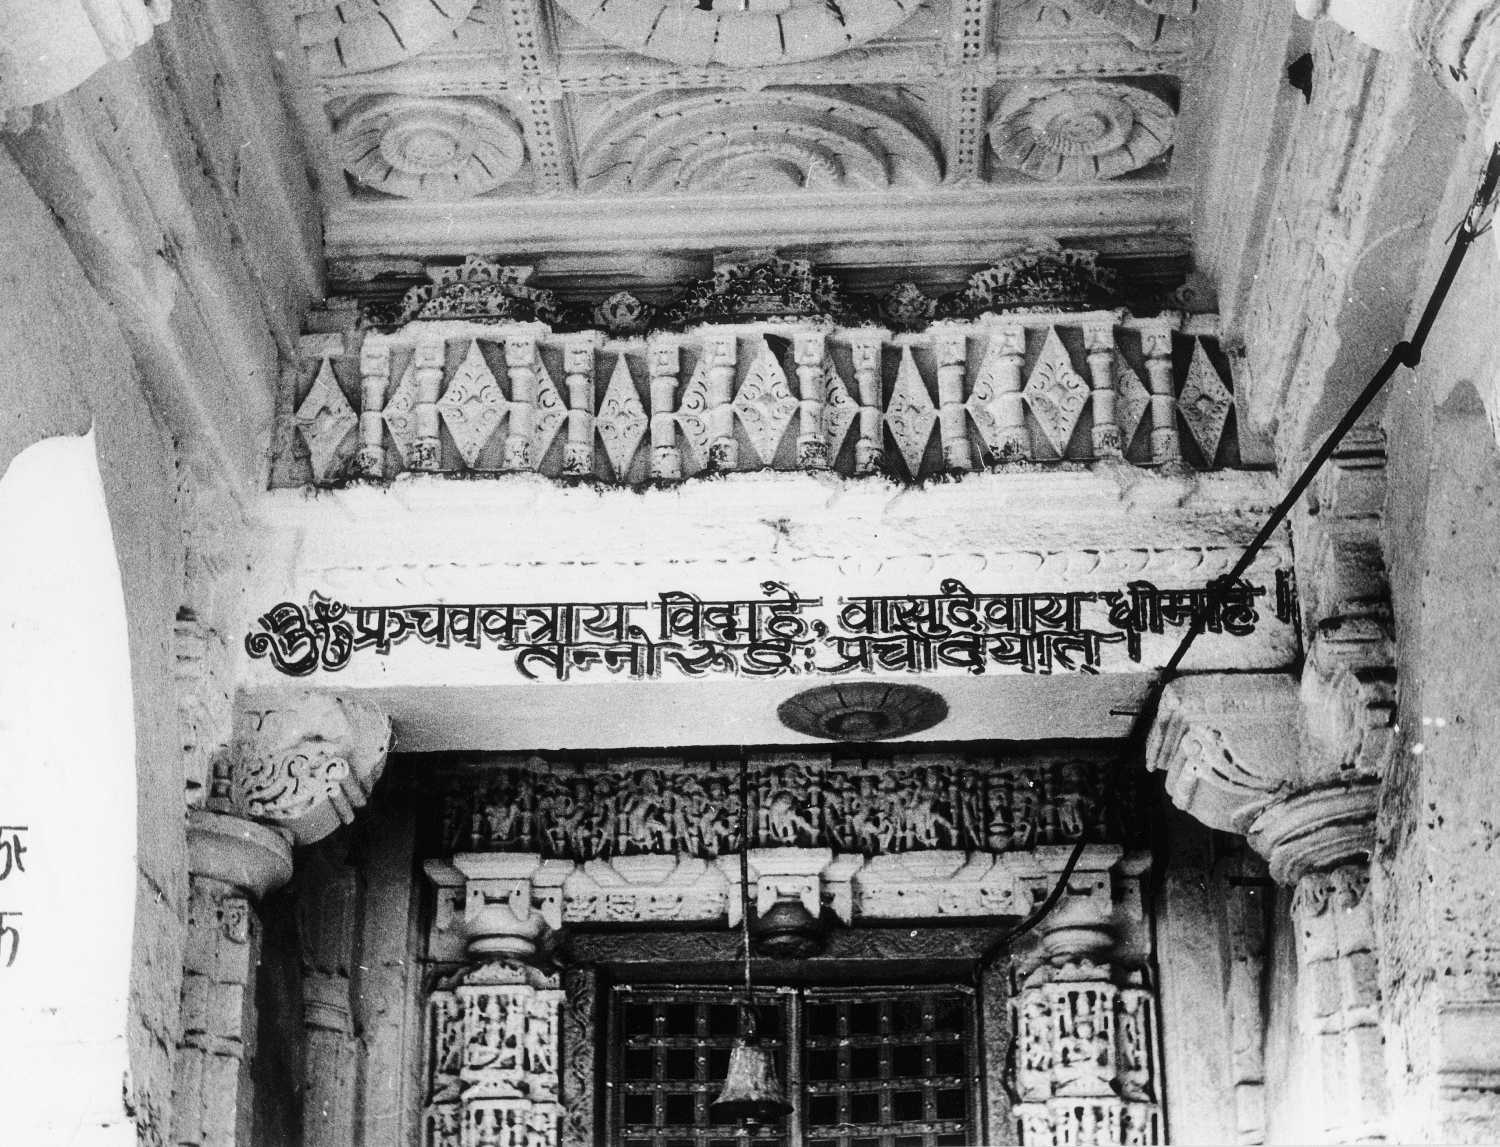 ॐ प्रञ्चवक्त्राय विद्महे, वासुदेवाय धीमहि ।
तन्नो रूद्रः प्रचोदयात् ।